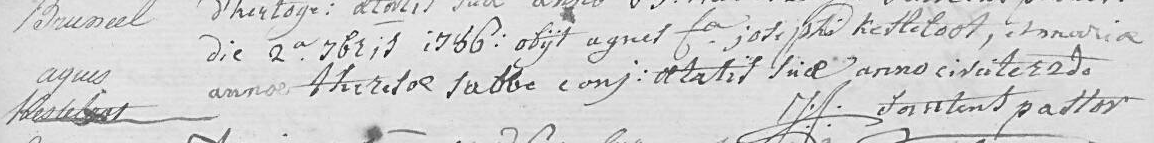 Bruneel
d'hertoge: ætatis suæ anno
die 2.ª 7bris 1786: obijt agnes f.ª josephi kesteloot, et mariæ
agnes
annæ theresæ sabbe conj: ætatis suæ anno circiter 2do
kesteloot
pastor